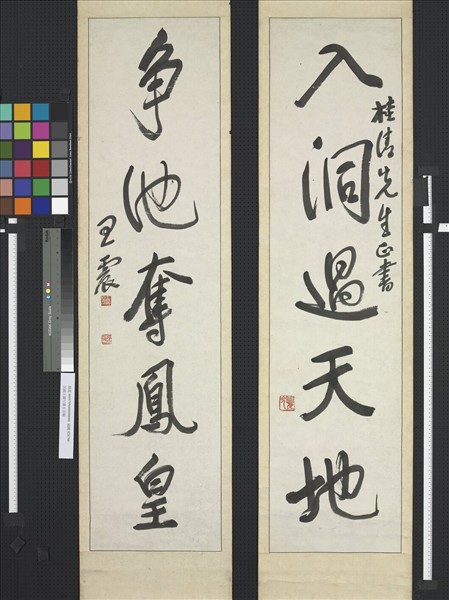 入洞過天地
桂清先生正書
争池奪鳳皇
王震